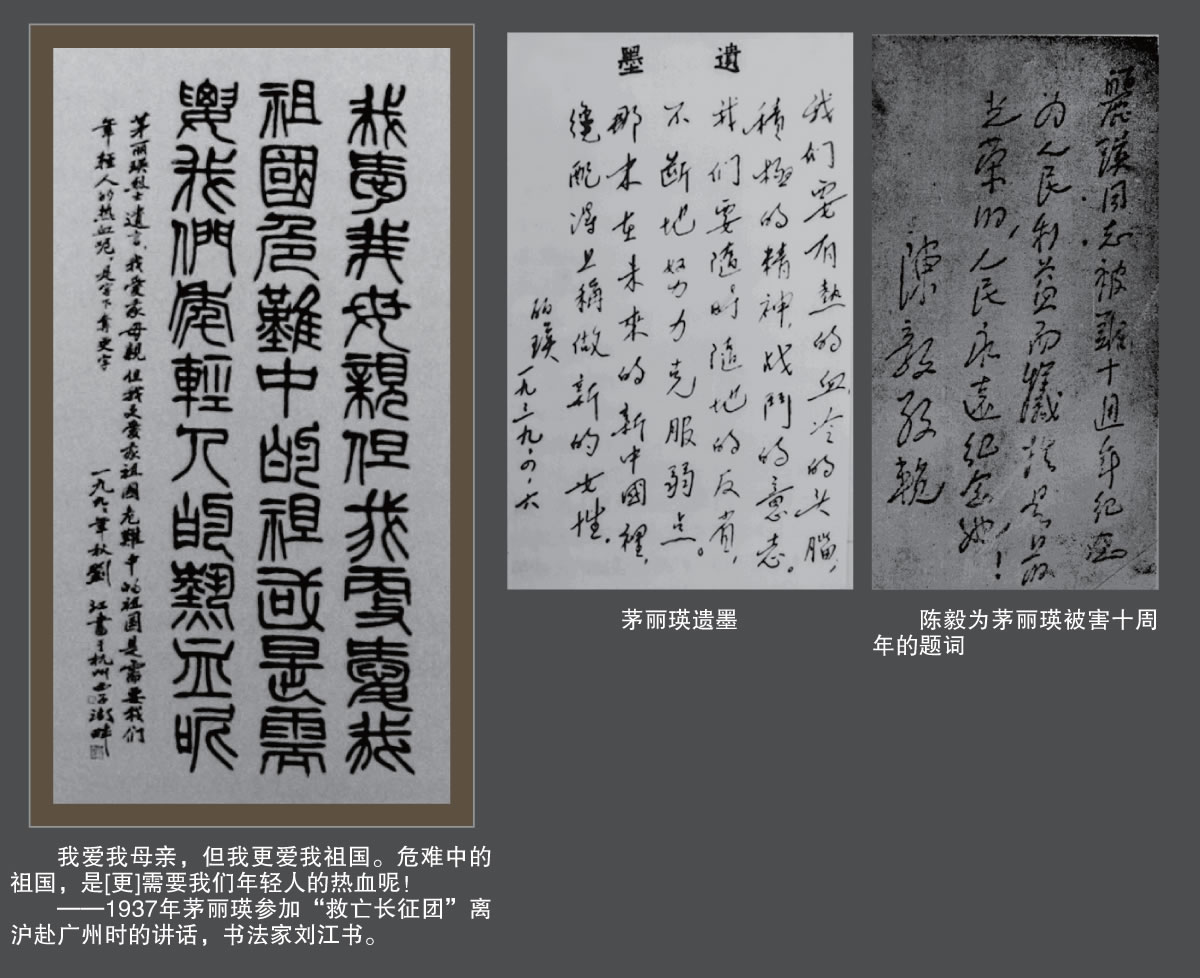 我愛我母親但我更愛我
祖國危難中的祖國是需
要我們年輕人的熱血呢
茅丽瑛烈士遗言.我爱我母親但我更爱我祖国危難中的祖国是需要我们
年轻人的热血呢.是字下奪更字
年秋劉江書于杭州西子湖畔
我爱我母亲，但我更爱我祖国。危难中的
祖国，是[更]需要我们年轻人的热血呢！
——1937年茅丽瑛参加“救亡长征团”离
沪赴广州时的讲话，书法家刘江书。
遺墨
我们要有熱的血,冷的头腦,
積極的精神,战鬥的意志。
我们要隨时隨地的反省,
不断地努力克服弱点。
那末在未来的新中國裡,
纔配得上稱做新的女性。
的瑛 一九三九·四·六
茅丽瑛遗墨
麗瑛同志被難十週年纪念
为人民利益而犧牲是最
光荣的,人民永遠纪念她!
陳毅敬輓
陈毅为茅丽瑛被害十周
年的题词